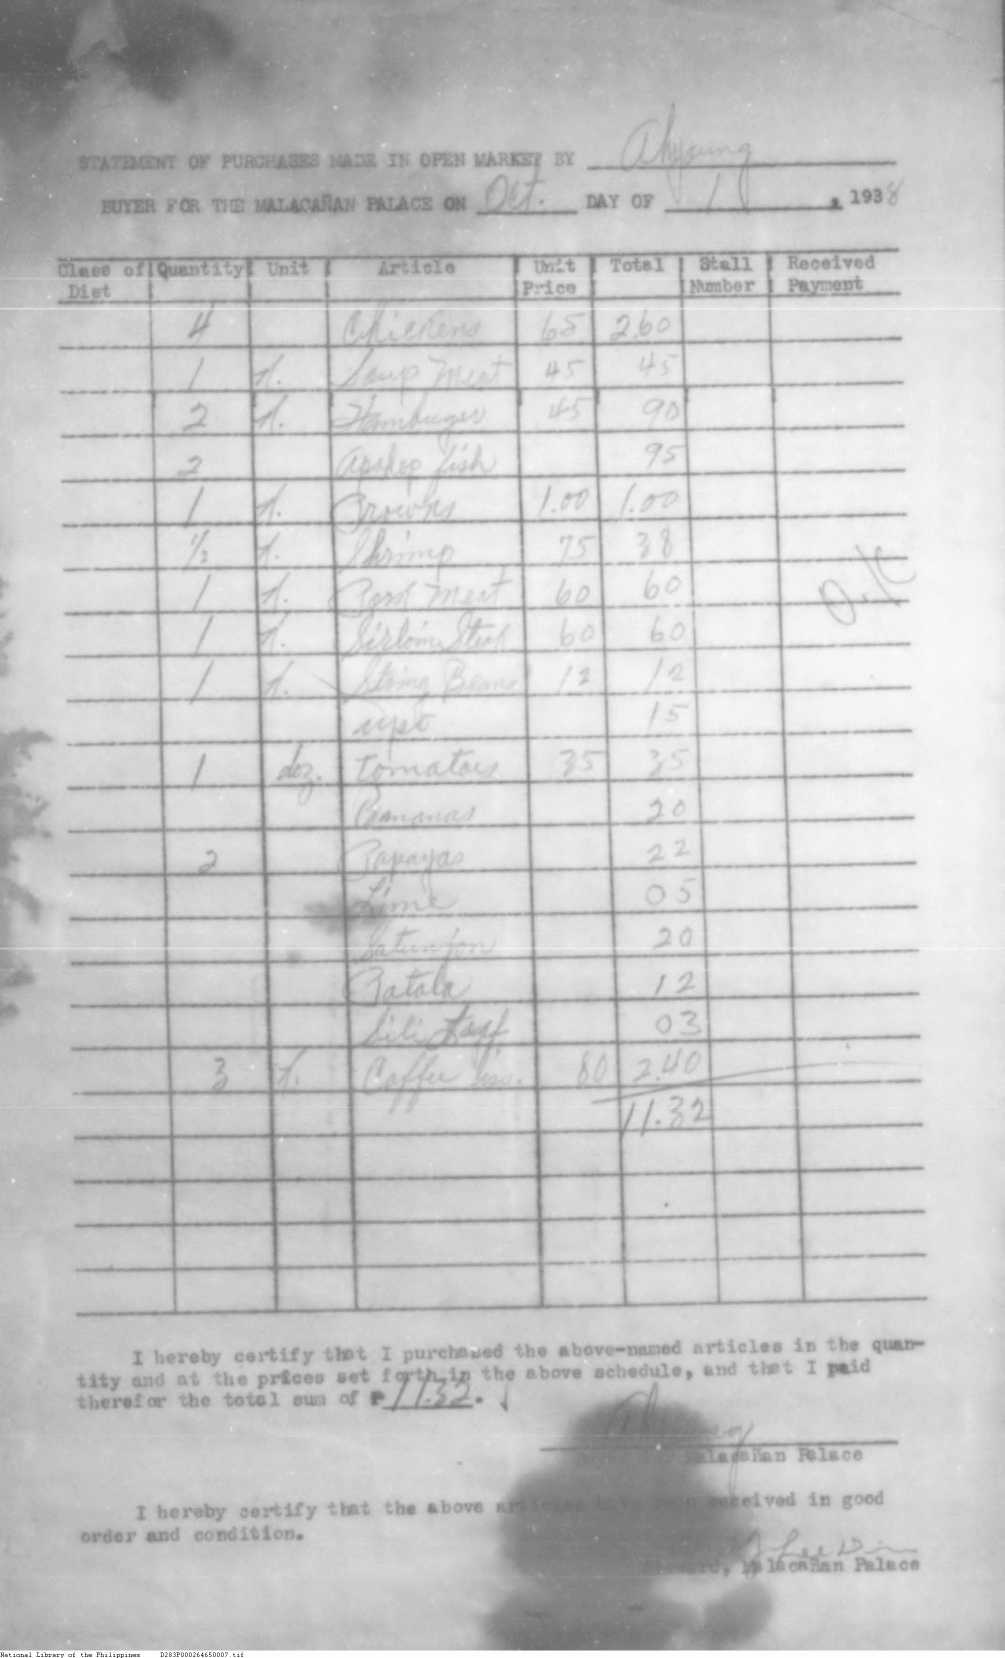 STATEMENT OF PURCHASES MADE IN OPEN MARKET BY Ahyoung
BUYER FOR THE MALACAÑAN PALACE ON Oct. DAY OF 1, 1938
Class of Diet Quantity Unit Article Unit Price Total Stall Number Received Payment
4 Chickens 65 2.60
1 k. Soup Meat 45 45
2 k. Hamburger 45 90
2 fish 95
1 k. Prowns 1.00 1.00
1/2 k. Shrimp 75 38
1 k. Meat 60 60
1 k. Sirloin Steak 60 60
1 k. String Beans 12 12
upo 15
1 doz. tomatoes 35 35
Bananas 20
2 Papayas 22
Lime 05
20
Patola 12
Sili 03
3 k. Coffee 80 2.40
11.32
O.K
I hereby certify that I purchased the above-named articles in the quan-
tity and at the prices set forth in the above schedule, and that I paid
therefor the total sum of ₱ 11.32.
Malacañan Palace
I hereby certify that the above articles have been received in good
order and condition.
Lee
Steward, Malacañan Palace
National Library of the Philippines D283P000264650007.tif